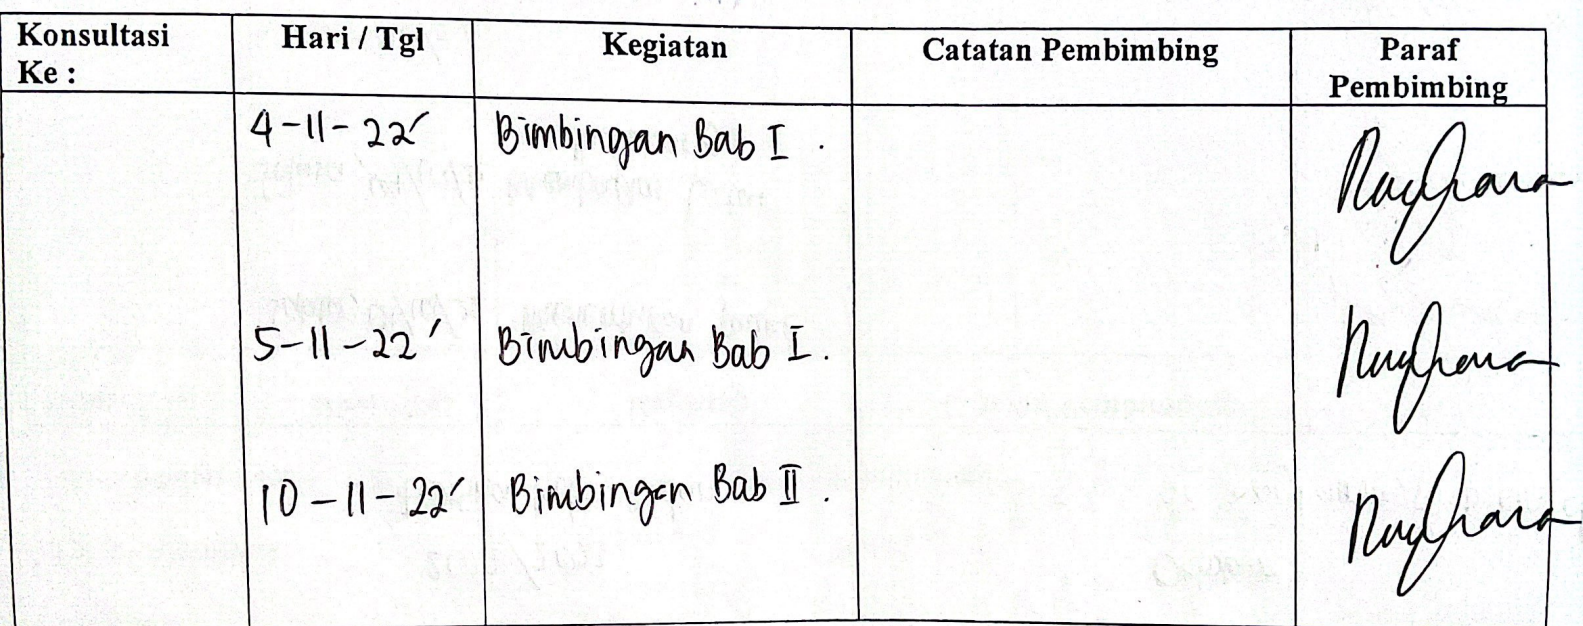 Konsultasi Ke : Hari / Tgl Kegiatan Catatan Pembimbing Paraf Pembimbing
4-11-22' Bimbingan Bab I .
5-11-22' Bimbingan Bab I .
10-11-22' Bimbingan Bab II .